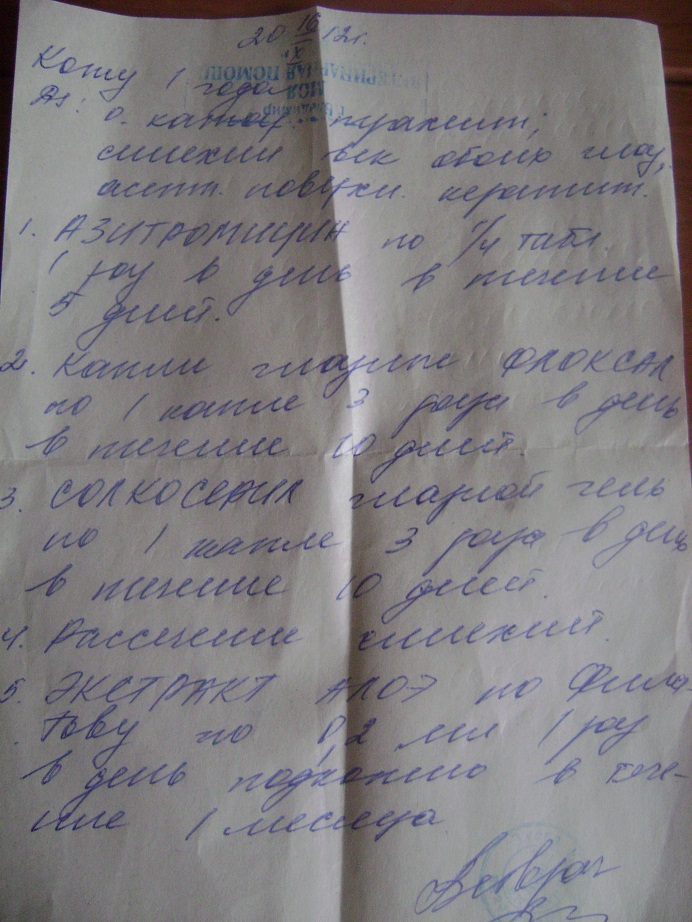 20 16/X 12г.
ВЕТЕРИНАРНАЯ ПОМОЩЬ
МОЯ
г. Владимир
Коту 1 года
Ds: о. катар. конъюнктивит;
синехии век обоих глаз,
асепт. поверхн. кератит.
1. АЗИТРОМИЦИН по 1/4 табл.
1 раз в день в течение
5 дней.
2. Капли глазные ФЛОКСАЛ
по 1 капле 3 раза в день
в течение 10 дней.
3. СОЛКОСЕРИЛ глазной гель
по 1 капле 3 раза в день
в течение 10 дней.
4. Рассечение синехий.
5. ЭКСТРАКТ АЛОЭ по Фила-
тову по 0,2 мл 1 раз
в день подкожно в тече-
ние 1 месяца
Ветврач